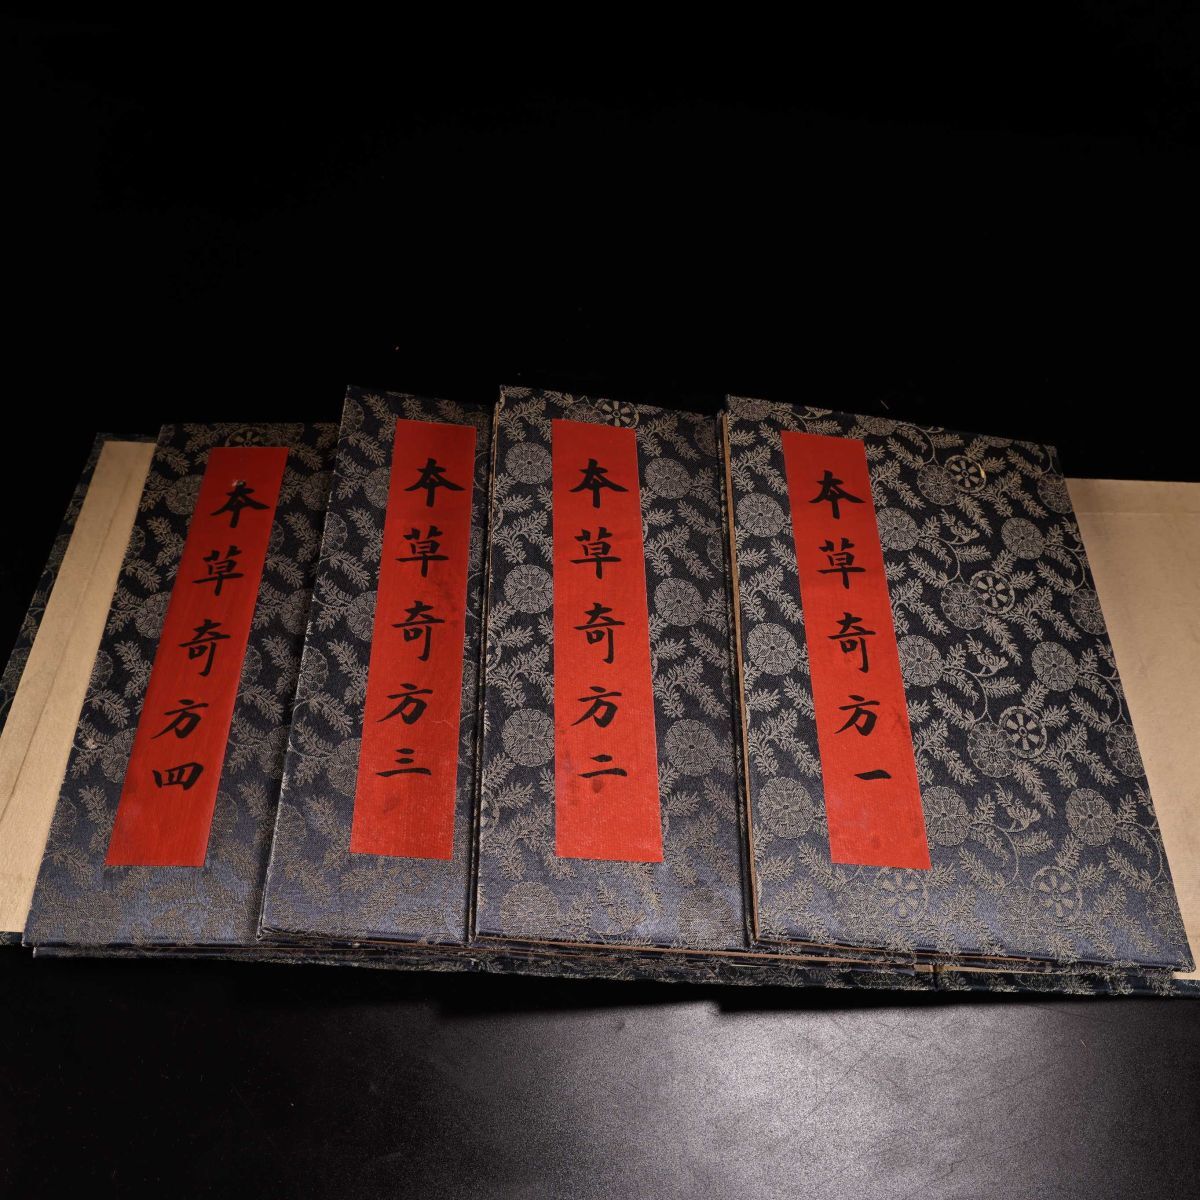 本草奇方一
本草奇方二
本草奇方三
本草奇方四